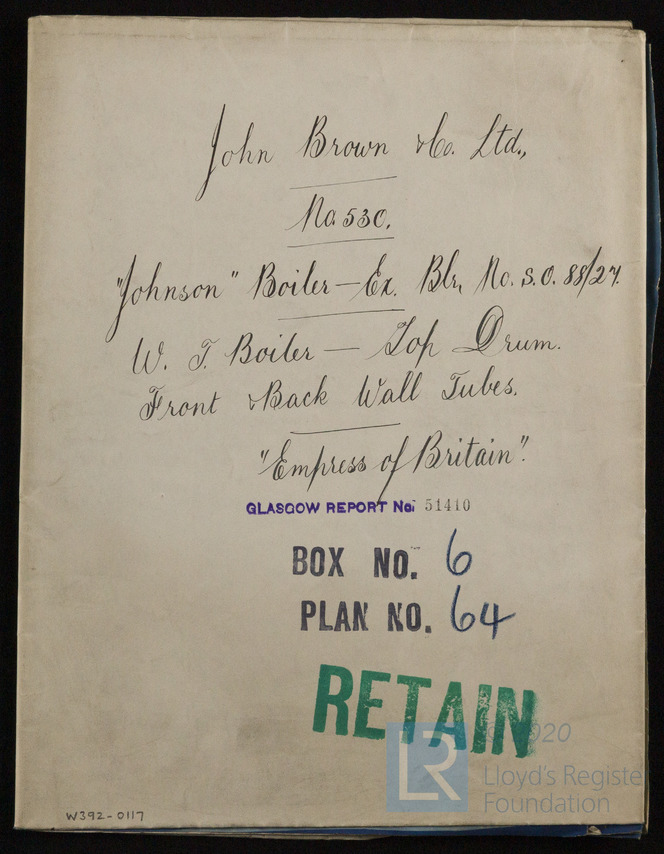 John Brown & Co. Ltd.,
No. 530.
"Johnson" Boiler — Ex. Blr. No. S.O. 88/27.
W. T. Boiler — Top Drum.
Front & Back Wall Tubes.
"Empress of Britain".
GLASGOW REPORT No. 51410
BOX NO. 6
PLAN NO. 64
RETAIN
2020
LR
Lloyd's Registe
Foundation
W392-0117